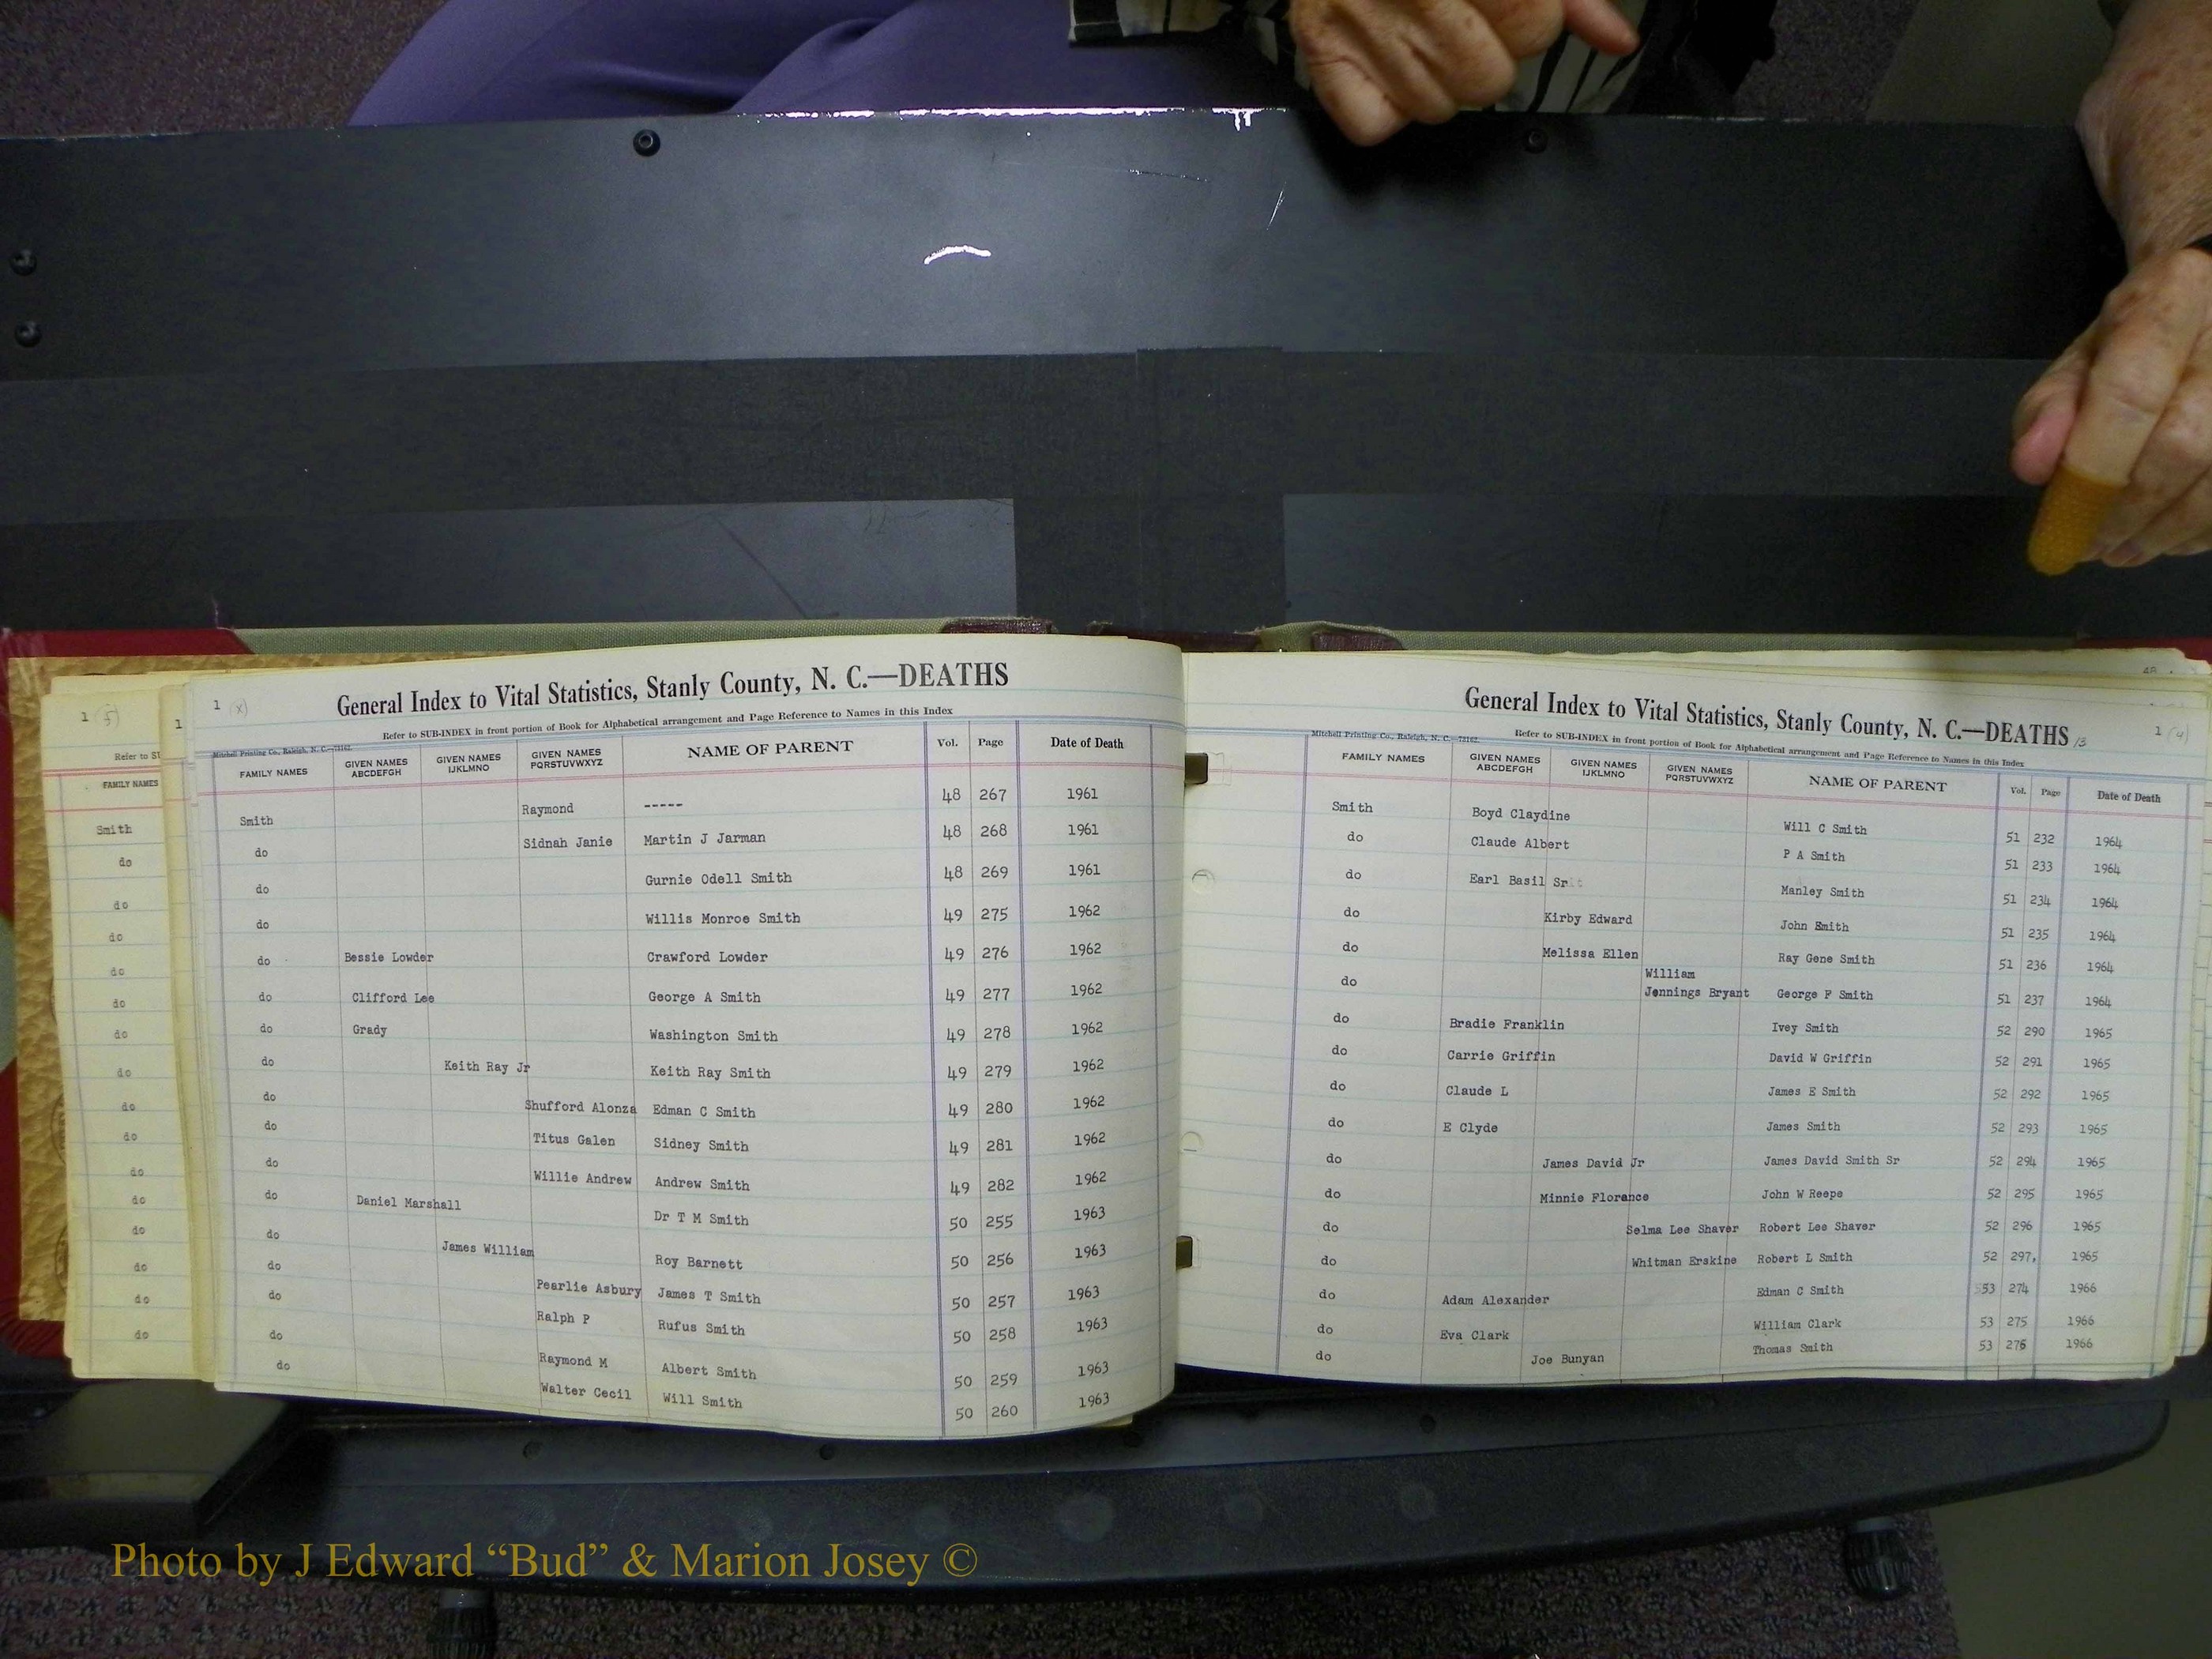 1 (f)
Refer to SU
FAMILY NAMES
Smith
do
do
do
do
do
do
do
do
do
do
do
do
do
do
do
1
1 (x)
General Index to Vital Statistics, Stanly County, N. C.—DEATHS
Refer to SUB-INDEX in front portion of Book for Alphabetical arrangement and Page Reference to Names in this Index
Mitchell Printing Co., Raleigh, N. C.—73162
FAMILY NAMES GIVEN NAMES ABCDEFGH GIVEN NAMES IJKLMNO GIVEN NAMES PQRSTUVWXYZ NAME OF PARENT Vol. Page Date of Death
Smith Raymond ----- 48 267 1961
do Sidnah Janie Martin J Jarman 48 268 1961
do Gurnie Odell Smith 48 269 1961
do Willis Monroe Smith 49 275 1962
do Bessie Lowder Crawford Lowder 49 276 1962
do Clifford Lee George A Smith 49 277 1962
do Grady Washington Smith 49 278 1962
do Keith Ray Jr Keith Ray Smith 49 279 1962
do Shufford Alonza Edman C Smith 49 280 1962
do Titus Galen Sidney Smith 49 281 1962
do Willie Andrew Andrew Smith 49 282 1962
do Daniel Marshall Dr T M Smith 50 255 1963
do James William Roy Barnett 50 256 1963
do Pearlie Asbury James T Smith 50 257 1963
do Ralph P Rufus Smith 50 258 1963
do Raymond M Albert Smith 50 259 1963
do Walter Cecil Will Smith 50 260 1963
General Index to Vital Statistics, Stanly County, N. C.—DEATHS 13
1 (4)
Mitchell Printing Co., Raleigh, N. C.—73162
Refer to SUB-INDEX in front portion of Book for Alphabetical arrangement and Page Reference to Names in this Index
FAMILY NAMES GIVEN NAMES ABCDEFGH GIVEN NAMES IJKLMNO GIVEN NAMES PQRSTUVWXYZ NAME OF PARENT Vol. Page Date of Death
Smith Boyd Claydine Will C Smith 51 232 1964
do Claude Albert P A Smith 51 233 1964
do Earl Basil Sr Manley Smith 51 234 1964
do Kirby Edward John Smith 51 235 1964
do Melissa Ellen Ray Gene Smith 51 236 1964
William
do Jennings Bryant George F Smith 51 237 1964
do Bradie Franklin Ivey Smith 52 290 1965
do Carrie Griffin David W Griffin 52 291 1965
do Claude L James E Smith 52 292 1965
do E Clyde James Smith 52 293 1965
do James David Jr James David Smith Sr 52 294 1965
do Minnie Florance John W Reepe 52 295 1965
do Selma Lee Shaver Robert Lee Shaver 52 296 1965
do Whitman Erskine Robert L Smith 52 297, 1965
do Adam Alexander Edman C Smith 53 274 1966
do Eva Clark William Clark 53 275 1966
do Joe Bunyan Thomas Smith 53 276 1966
Photo by J Edward “Bud” & Marion Josey ©